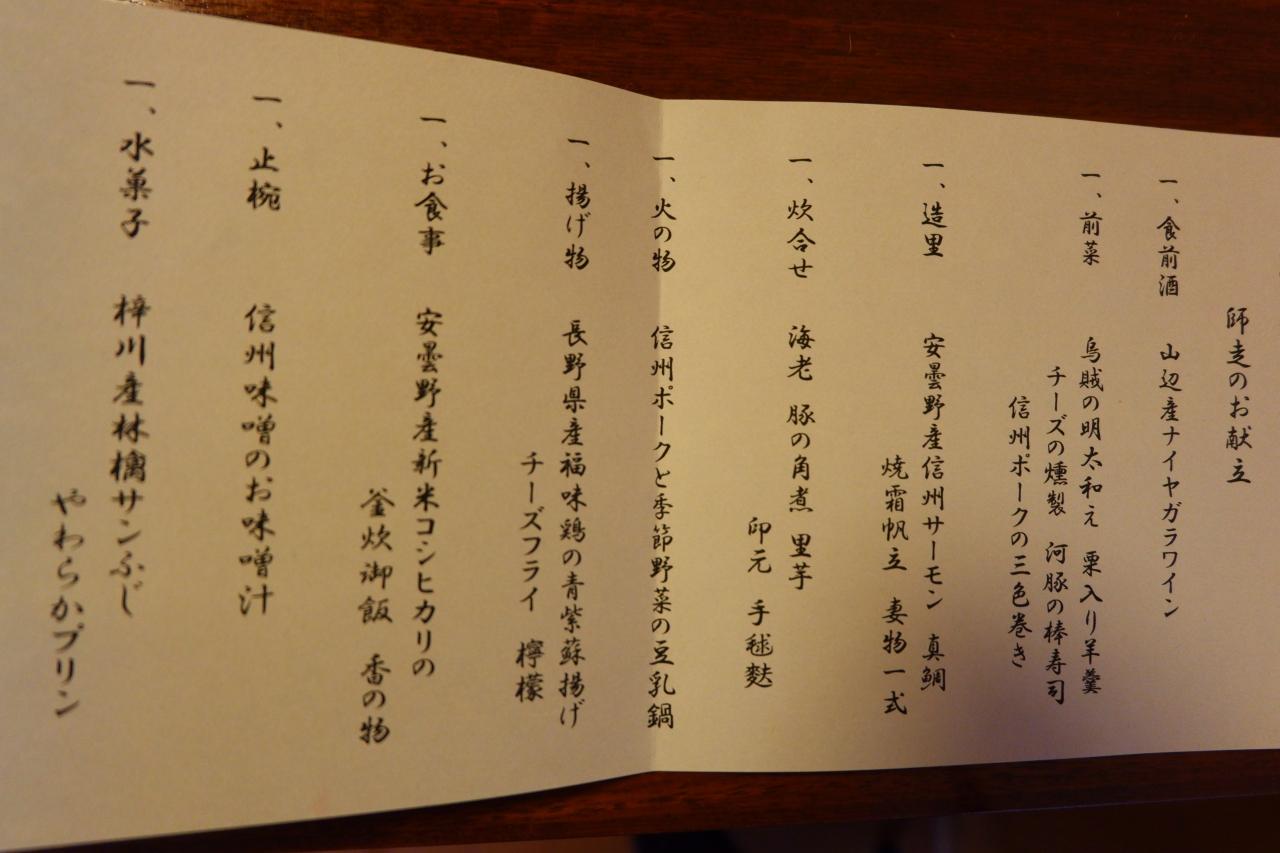 師走のお献立
一、食前酒　山辺産ナイヤガラワイン
一、前菜　烏賊の明太和え　栗入り羊羹
チーズの燻製　河豚の棒寿司
信州ポークの三色巻き
一、造里　安曇野産信州サーモン　真鯛
焼霜帆立　妻物一式
一、炊合せ　海老　豚の角煮　里芋
印元　手毬麩
一、火の物　信州ポークと季節野菜の豆乳鍋
一、揚げ物　長野県産福味鶏の青紫蘇揚げ
チーズフライ　檸檬
一、お食事　安曇野産新米コシヒカリの
釜炊御飯　香の物
一、止椀　信州味噌のお味噌汁
一、水菓子　梓川産林檎サンふじ
やわらかプリン